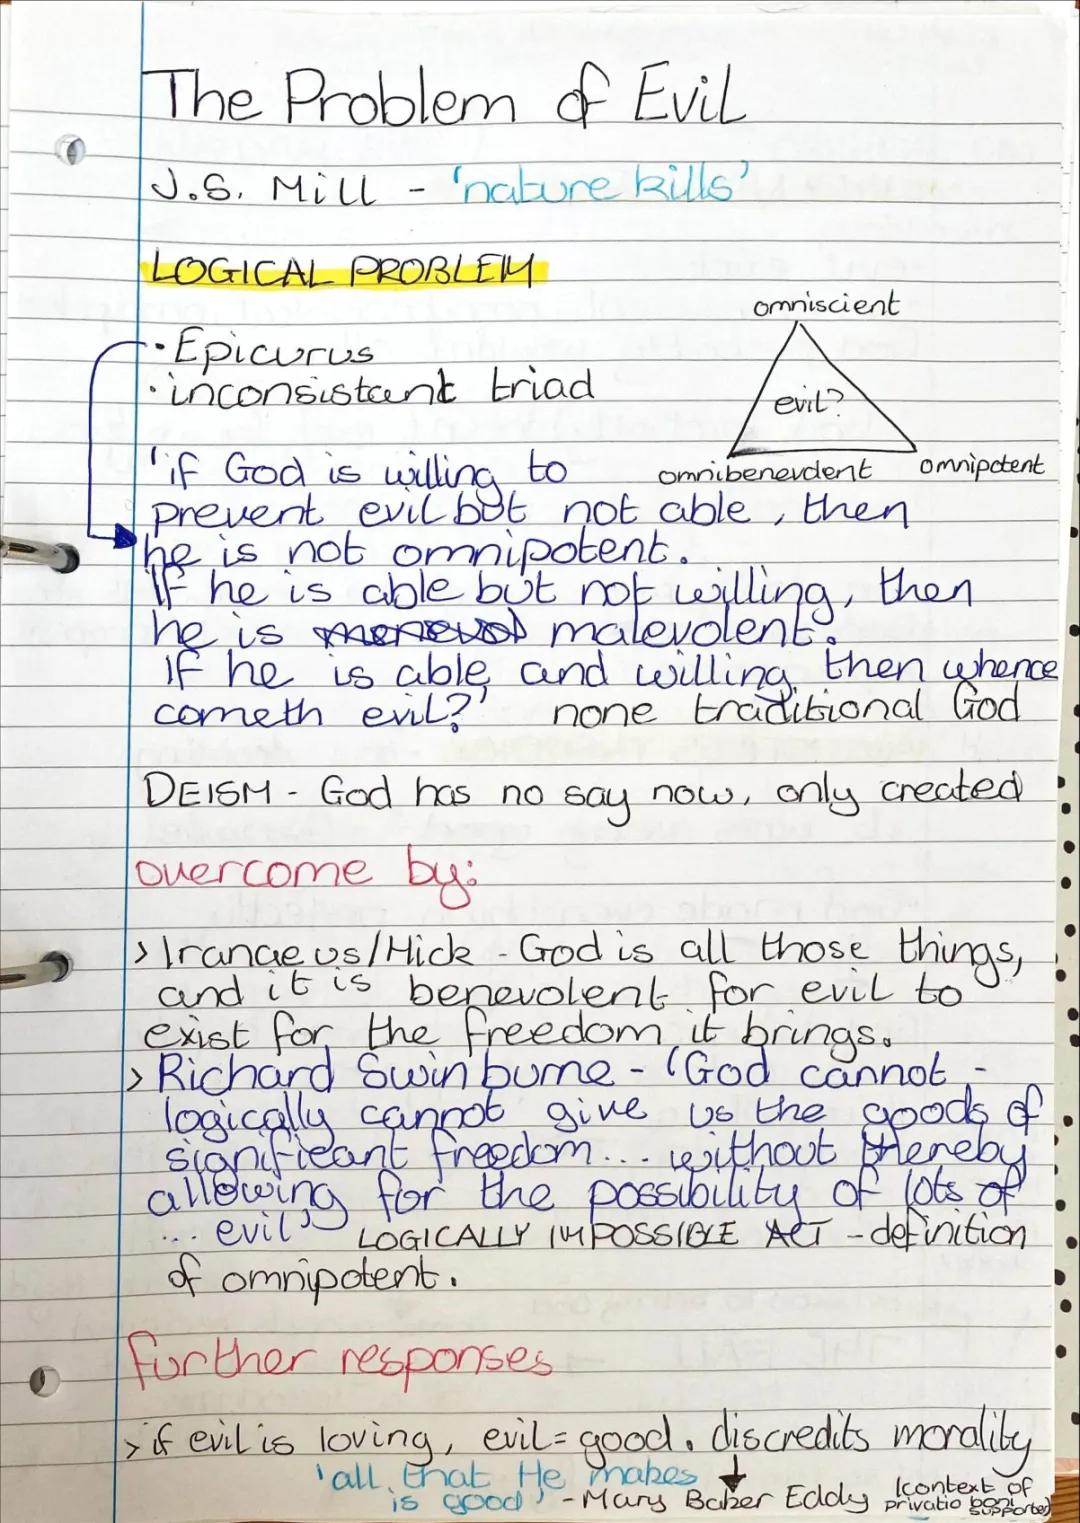 The Problem of Evil
J.S. Mill - 'nature kills'
LOGICAL PROBLEM
omniscient
• Epicurus
• inconsistent triad
evil?
omnibenevolent
omnipotent
'if God is willing to
prevent evil but not able, then
he is not omnipotent.
If he is able but not willing, then
he is malevolent.
If he is able and willing, then whence
cometh evil?' none traditional God
DEISM - God has no say now, only created
overcome by:
> Iranaeus/Hick - God is all those things,
and it is benevolent for evil to
exist for the freedom it brings.
> Richard Swinburne - 'God cannot -
logically cannot give us the goods of
significant freedom... without thereby
allowing for the possibility of lots of
... evil' LOGICALLY IMPOSSIBLE ACT - definition
of omnipotent.
further responses
> if evil is loving, evil = good. discredits morality
'all that He makes
is good' - Mary Baker Eddy
(context of
privatio boni
supported)